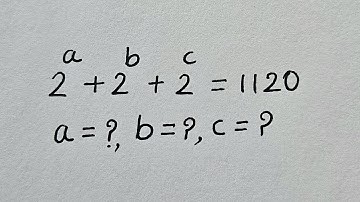 2ᵃ + 2ᵇ + 2ᶜ = 1120
a = ?, b = ?, c = ?